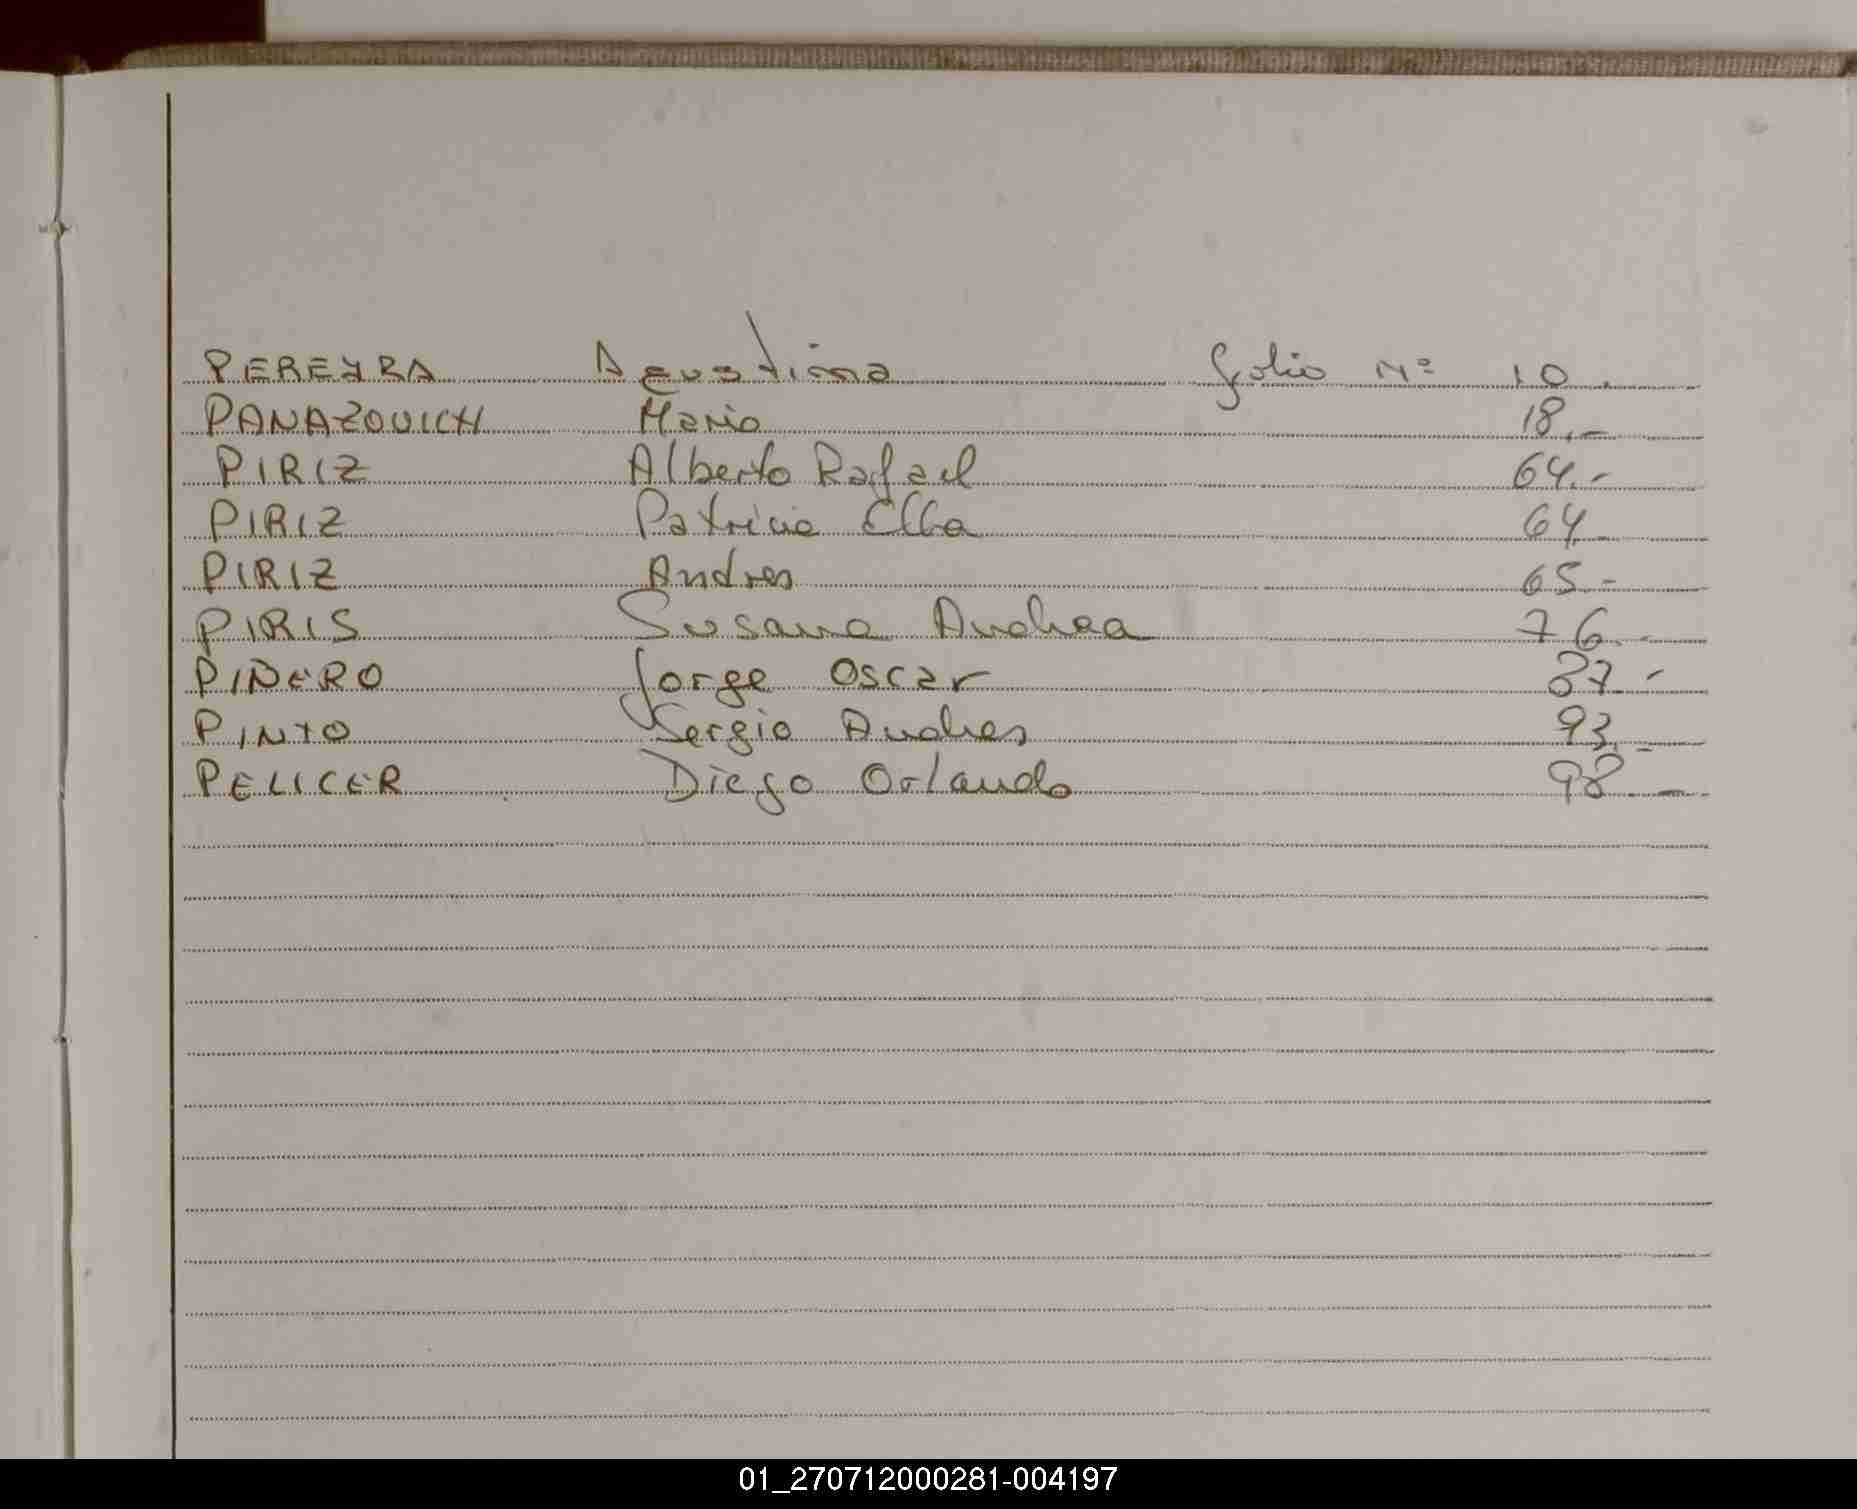 PEREYRA Agustina folio Nº 10.
PANAZOVICH Mario 18.-
PIRIZ Alberto Rafael 64.-
PIRIZ Patricia Elba 64
PIRIZ Andres 65-
PIRIS Susana Andrea 76.-
PIÑERO Jorge Oscar 87.-
PINTO Sergio Andres 93.-
PELICER Diego Orlando 98.-
01_270712000281-004197